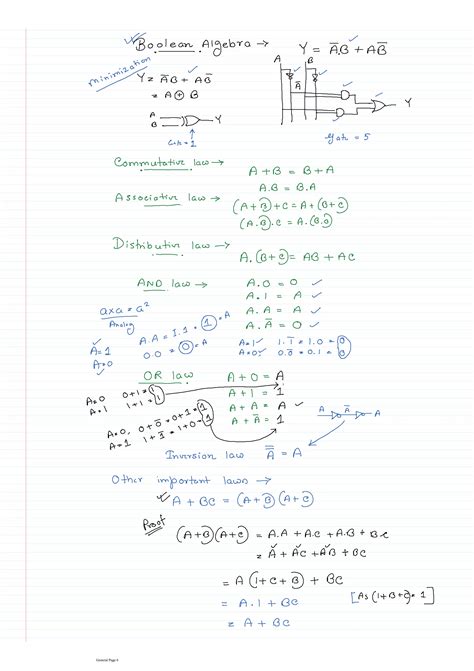 Boolean Algebra → Y = A̅B + AB̅
minimization
Y = A̅B + AB̅
= A ⊕ B
A B
A̅
Y
A
B
Y
Gate = 1
Gate = 5
Commutative law → A + B = B + A
A.B = B.A
Associative law → (A+B)+C = A+(B+C)
(A.B).C = A.(B.C)
Distributive law → A.(B+C) = AB + AC
AND law → A.0 = 0
A.1 = A
A.A = A
A.A̅ = 0
axa = a²
Analog
A=1
A=0
A.A = 1.1 = 1 = A
0.0 = 0 = A
A=1 1.1̅ = 1.0 = 0
A=0 0.0̅ = 0.1 = 0
OR law A + 0 = A
A + 1 = 1
A + A = A
A + A̅ = 1
A=0 0+1=1
A=1 1+1=1
A=0, 0+0̅=0+1=1
A=1 1+1̅=1+0=1
A A̅ A
Inversion law A̿ = A
Other important laws →
A + BC = (A+B)(A+C)
Proof
(A+B)(A+C) = A.A + A.C + A.B + BC
= A + AC + AB + BC
= A (1+C+B) + BC
= A.1 + BC [As (1+B+C)=1]
= A + BC